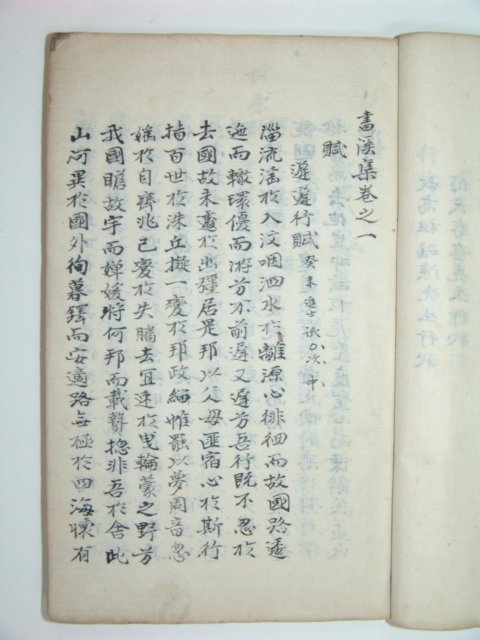 畵溪集卷之一
賦
遲遲行賦 癸未進士試〇次中
淄流滛於入汶咽泗水於離源心徘徊而故國路透
迤而轍環優而游兮不前遲又遲兮吾行旣不忍於
去國故未遽於出疆居是邦以父母匪宿心於斯行
指百世於洙丘擬一變於邦政緇帷罷以夢周音忽
於自齊兆已變於失膰去宜速於曳輪蒙之野兮
我國瞻故宇而嬋媛將何邦而載贄捴非吾於舍此
山河異於國外徇暮鐸而安適路無極於四海懷有